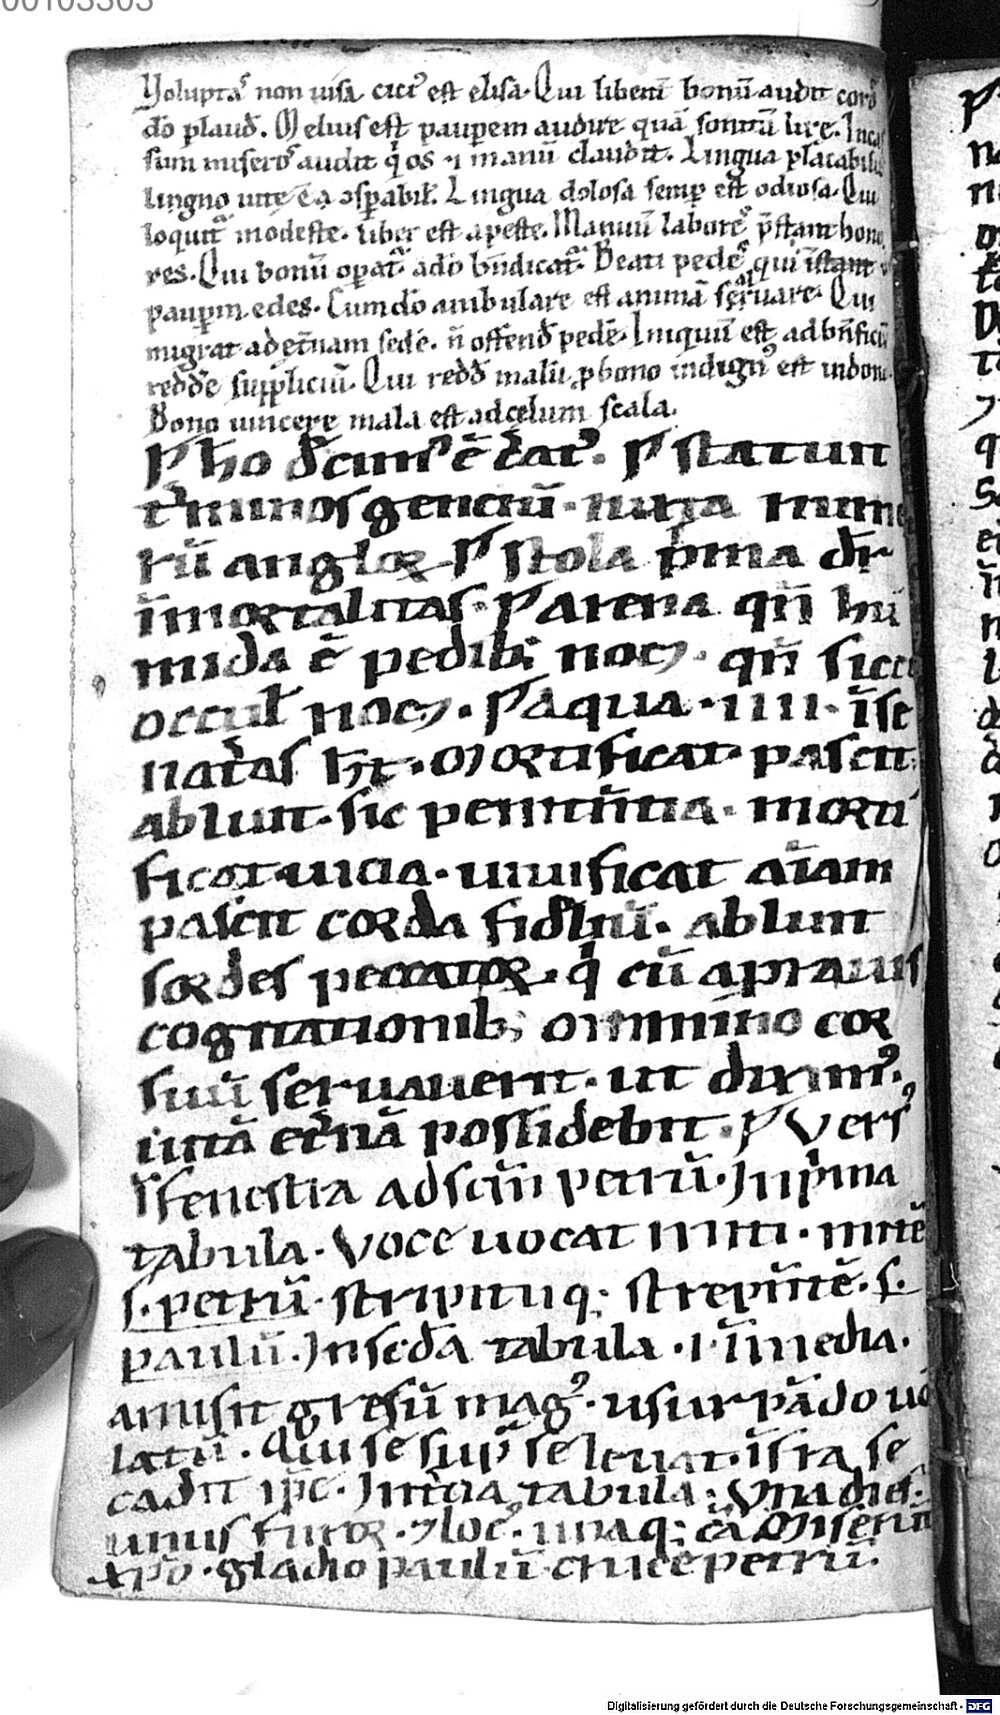 00103303
Voluptaˢ non uisa citiꝰ est elisa. Qui libent̄ bonū audit corō
dō plaud̄. Melius est pauperem audire quā sonitū lire. Incas
sum miseroˢ audit q̇ os ⁊ manū claudit. Lingua placabilis
lingno uite ē ꝯparabil̄. Lingua dolosa semp̄ est odiosa. Qui
loquit᷑ modeste. liber est a peste. Manuū laboreˢ p̄stant hono
res. Qui bonū operat᷑ a dō bn̄dicat᷑. Beati pedeˢ qui īstant
paup̄m edes. Cum dō ambulare est animā seruare. Qui
migrat ad et̄nam sedē. n̄ offend̄ pedē. Iniquū est ad bn̄ficiū
redd̄e suppliciū. Qui redd̄ malū p̱ bono indignꝰ est in dono.
Bono uincere mala est ad celum scala.
P̱ hō d̄cimꝰ ē c̄atꝰ. P̱ statuit
t̄minos genciū. iuxta nume
rū angloꝝ P̱ stola p̄ma dr̄
īmortalitas. P̱ arena qn̄ hu
mida ē pedibꝫ nocꝫ. qn̄ sicca
occul̄ nocꝫ. P̱ aqua. IIII. ī se
nat̄as ht̄. Mortificat. pascit.
abluit. sic penitn̄tia. morti
ficat uicia. uiuificat aīam
pascit corda fidl̄iū. abluit
sordes peccatoꝝ. q̇ cū a prauis
cogitationibꝫ ommīno cor
suū seruauerit. ut diximꝰ.
uitā et̄nā possidebit. P̱ Versꝰ
ī fenestra ad scm̄ petrū. In p̄ma
tabula. Voce uocat miti. mitē
s. petrū. strepituqꝫ strepn̄tē. s.
paulū. In secd̄a tabula. i. ī media.
amisit gresū magꝰ. usurpādo uo
latū. Qui se sup̄ se leuat. īfra se
cadit ip̄e. In t̄cia tabula. Vna dies.
unus furor. ⁊ locꝰ. unaqꝫ cā Miserūt
xp̄o. gladio paulū. cruce petrū.
Digitalisierung gefördert durch die Deutsche Forschungsgemeinschaft - DFG